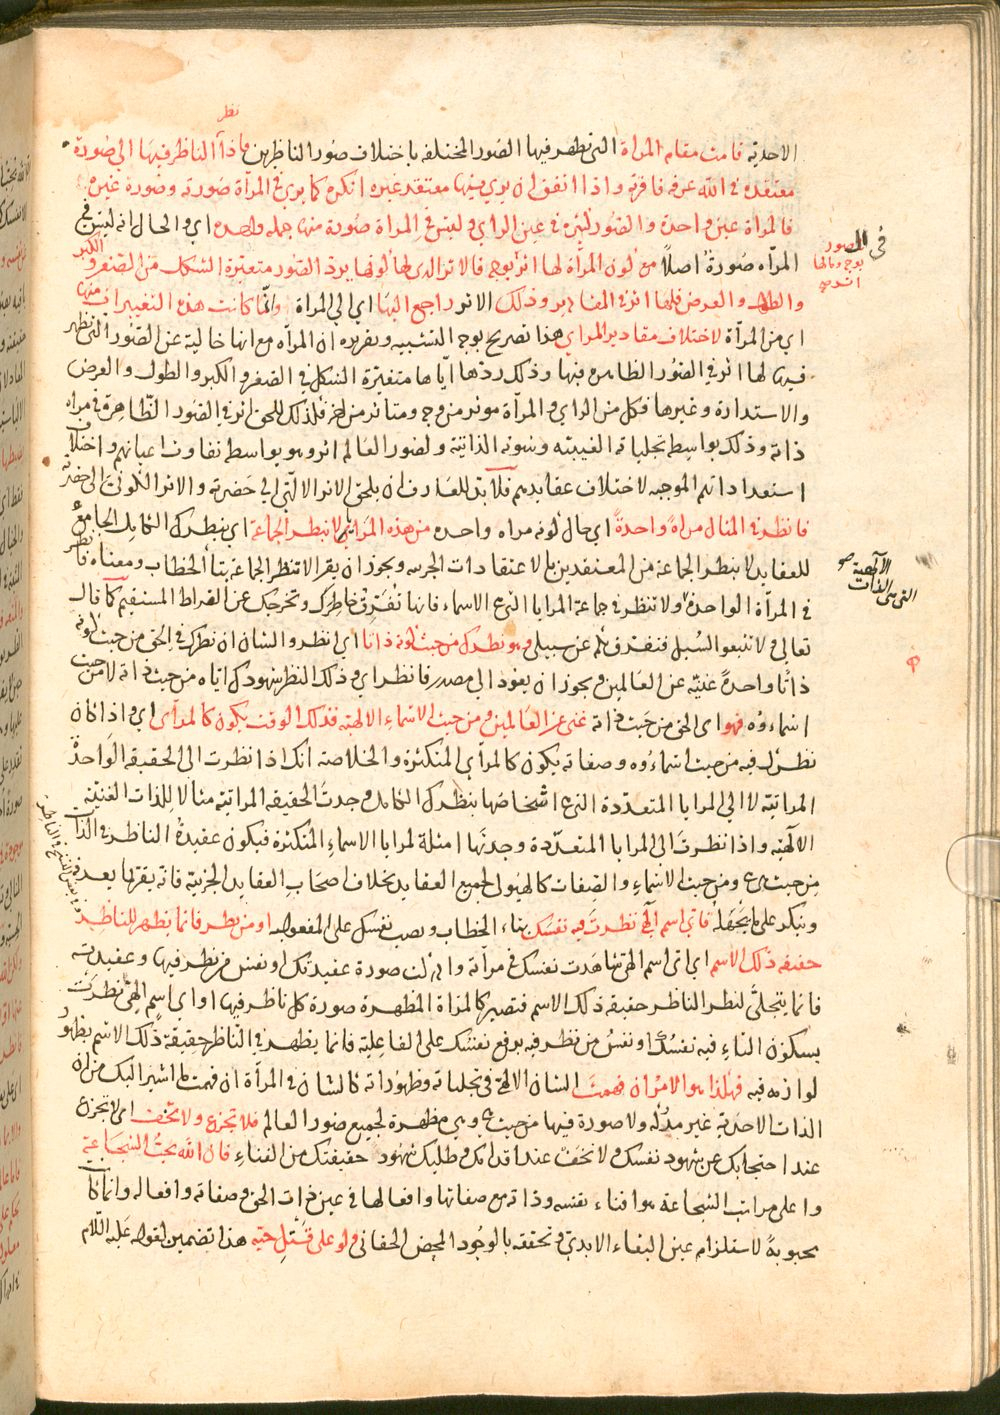 نظر
الاحدية قامت مقام المراة التى تظهر فيها الصور المختلفة باختلاف صور الناظرين فاذا الناظر فيها الى صورة
معتقده فى الله عرفه فاقر به واذا اتفق ان يرى فيها معتقد غيره انكره كما يرى فى المرآة صورته وصورة غيره
فالمراة عين واحدة والصور كثيرة فى عين الراى وليس فى المراة صورة منها جملة واحدة اى والحال انه ليس فى
المرآه صورة اصلا مع كون المرآة لها اثر بوجه فالاثر الذى لها كونها يرد الصور متغيرة الشكل من الصغر والكبر
والطول والعرض فلها اثر فى المقادير وذلك الاثر راجع اليها اى الى المراة وانما كانت هذه التغييرات منها
اى من المرآة لاختلاف مقادير المراى هذا تصريح بوجه التشبيه وتقريره ان المرآه مع انها خالية عن الصور التى تظهر
فيها لها اثر فى الصور الظاهره فيها وذلك ردها اياها متغيرة الشكل فى الصغر والكبر والطول والعرض
والاستدارة وغيرها فكل من الراى والمرآة موثر من وجه ومتاثر من اخر فكذلك للحق اثر فى الصور الظاهرة فى مراه
ذاته وذلك بواسطه تجلياته الغيبيه وشونه الذاتية ولصور العالم اثر وهو بواسطه تفاوت اعيانهم واختلاف
استعداداتهم الموجبه لاختلاف عقايدهم فلا بد للعارف ان يلحق الاثر الالهى الى حضرته والاثر الكونى الى حضرته
فانظر فى المثال مراة واحدة اى حال كونه مراه واحده من هذه المرائى لا تنظر الجماعة اى ينظرك الكامل الجامع
للعقايد لا بنظر الجماعة من المعتقدين بالاعتقادات الجزييه ويجوز ان يقرا لا تنظر الجماعة بتاء الخطاب ومعناه فانظر
فى المرآة الواحدة ولا تنظر فى جماعة المرايا التى هى الاسماء فانها تفرق خاطرك وتخرجك عن الصراط المستقيم كما قال
تعالى ولا تتبعوا السبل فتفرق بكم عن سبيله وهو نظرك من حيث كونه ذاتا اى نظر والشان ان نظرك فى الحق من حيث كونه
ذاتا واحدة غنية عن العالمين ويجوز ان يعود الى مصدر فانظر اى وذلك النظر شهودك اياه من حيث ذاته لا من حيث
اسماءوه فهو اى الحق من حيث ذاته غنى عن العالمين ومن حيث الاسماء الالهية فذلك الوقت يكون كالمرآى اى واذا كان
نظرك فيه من حيث اسماءوه وصفاته يكون كالمرآى المتكثرة والخلاصة انك اذا نظرت الى الحقيقة الواحدة
المراتية لا الى المرايا المتعددة التى هى اشخاصها بنظرك الكامل وجدت الحقيقة المراتية مثالا للذات الغنية
الالهية واذا نظرت الى المرايا المتعددة وجدتها امثلة لمرايا الاسماء المتكثرة فيكون عقيدة الناظر فى الذات
من حيث هى ومن حيث الاسماء والصفات كالهيولى لجميع العقايد بخلاف اصحاب العقايد الجزيية فانه يقر بما يعرفه
وينكر على ما يجهله فاى اسم الهى نظرت فيه نفسك بتاء الخطاب ونصب نفسك على المفعوليه او من نظر فانما يظهر للناظر
حقيقة ذلك الاسم اى اى اسم الهى شاهدت نفسك فى مرآته وان كانت صورة عقيدتك او نفس من نظر فيها وعقيدته
فانما يتجلى لنظر الناظر حقيقة ذلك الاسم فتصير كالمراة المظهرة صورة كل ناظر فيها او اى اسم الهى نظرت
بسكون التاء فيه نفسك او نفس من نظر فيه برفع نفسك على الفاعلية فانما يظهر فى الناظر حقيقة ذلك الاسم بظهور
لوازمه فيه فهكذا هو الامر ان فهمت الشان الالهى فى تجلياته وظهوراته كالشان فى المرآة ان فهمت ما اشير اليك من ان
الذات الاحدية غير مدركه ولا صورة فيها من حيث هى وهى مظهرة لجميع صور العالم فلا تجزع ولا تخف اى لا تجزع
عند احتجابك عن شهود نفسك ولا تخف عند اقدامك وطلبك شهود حقيقتك من الفناء فان الله يحب الشجاعة
واعلى مراتب الشجاعة هو افناء نفسه وذاته مع صفاتها وافعالها فى عين ذات الحق وصفاته وافعاله وانما كان
محبوبة لاستلزامه عين البقاء الابدى وتحققه بالوجود المحض الحقانى ولو على قتل حية هذا تضمين لقوله عليه السلام
فى الصور
بوجه وما لها
اثر بوجه
الالهية
التى هى الذات
صح